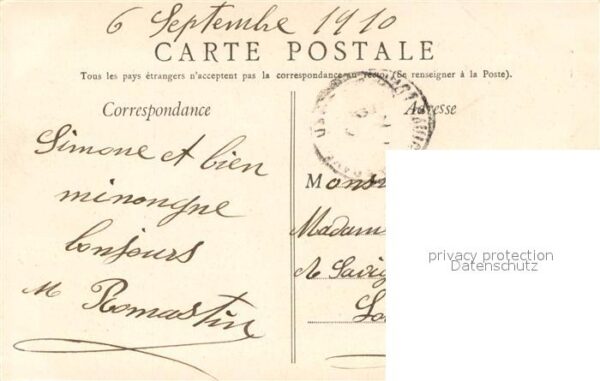 6 Septembre 1910
CARTE POSTALE
Tous les pays étrangers n'acceptent pas la correspondance au recto. (Se renseigner à la Poste).
Correspondance
Adresse
Simone et bien
minongne
bonjours
M
Mons
Madam
à Savig
privacy protection
Datenschutz